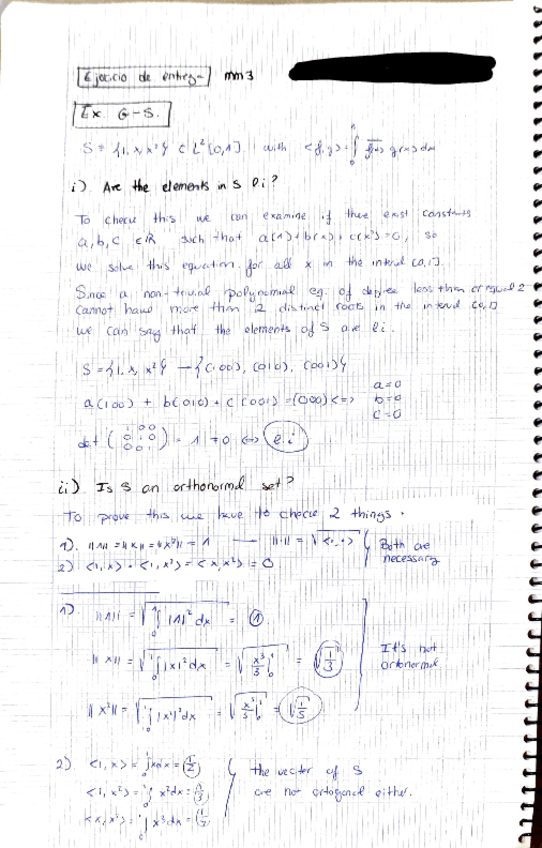 Ejercicio de entrega mm3
Ex. G-S.
S = {1, x, x²} ⊂ L²[0,1] with <f,g> = ∫₀¹ f(x) g(x) dx
i) Are the elements in S l.i?
To check this we can examine if there exist constants
a, b, c ∈ℝ such that a(1)+b(x)+c(x²)=0, so
we solve this equation for all x in the interval [0,1].
Since a non-trivial polynomial eq. of degree less than or equal 2
cannot have more than 2 distinct roots in the interval [0,1]
we can say that the elements of S are li.
S = {1, x, x²} → {(100), (010), (001)}
a(100) + b(010) + c(001) = (000) <=> a=0 b=0 c=0
det (100 010 001) = 1 ≠ 0 <=> l.i
ii) Is S an orthonormal set?
To prove this we have to check 2 things.
1). ||1|| = ||x|| = ||x²|| = 1 — ||·|| = √<·,·>
2) <1,x> = <1,x²> = <x,x²> = 0
Both are necessary
1). ||1|| = √∫₀¹ |1|² dx = 1
||x|| = √∫₀¹ |x|² dx = √x³/3|₀¹ = √1/3
It's not ortonormal
||x²|| = √∫₀¹ |x²|² dx = √x⁵/5|₀¹ = √1/5
2) <1,x> = ∫₀¹ x dx = 1/2
<1,x²> = ∫₀¹ x² dx = 1/3
<x,x²> = ∫₀¹ x³ dx =
the vector of S
are not ortogonal either.